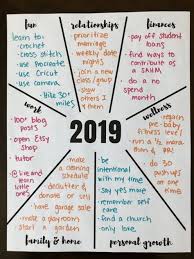 fun
learn to:
- crochet
- cross stitch
- use Procreate
- use Cricut
- use camera
- Hike 30+ miles
relationships
- prioritize marriage
- weekly date nights
- join a new class/group
- show others I ♥ them
finances
- pay off student loans
- find ways to contribute as a SAHM
- do a no spend month
work
- 100+ blog posts
- open Etsy shop
- tutor
2019
wellness
- regain pre-baby fitness level
- do 30 pushups
family & home
- make a cleaning schedule
- declutter & donate or sell
- have garage sale
- make a playroom
- start a garden
personal growth
- be intentional with my time
- say yes more
- remember self care
- find a church
- only love